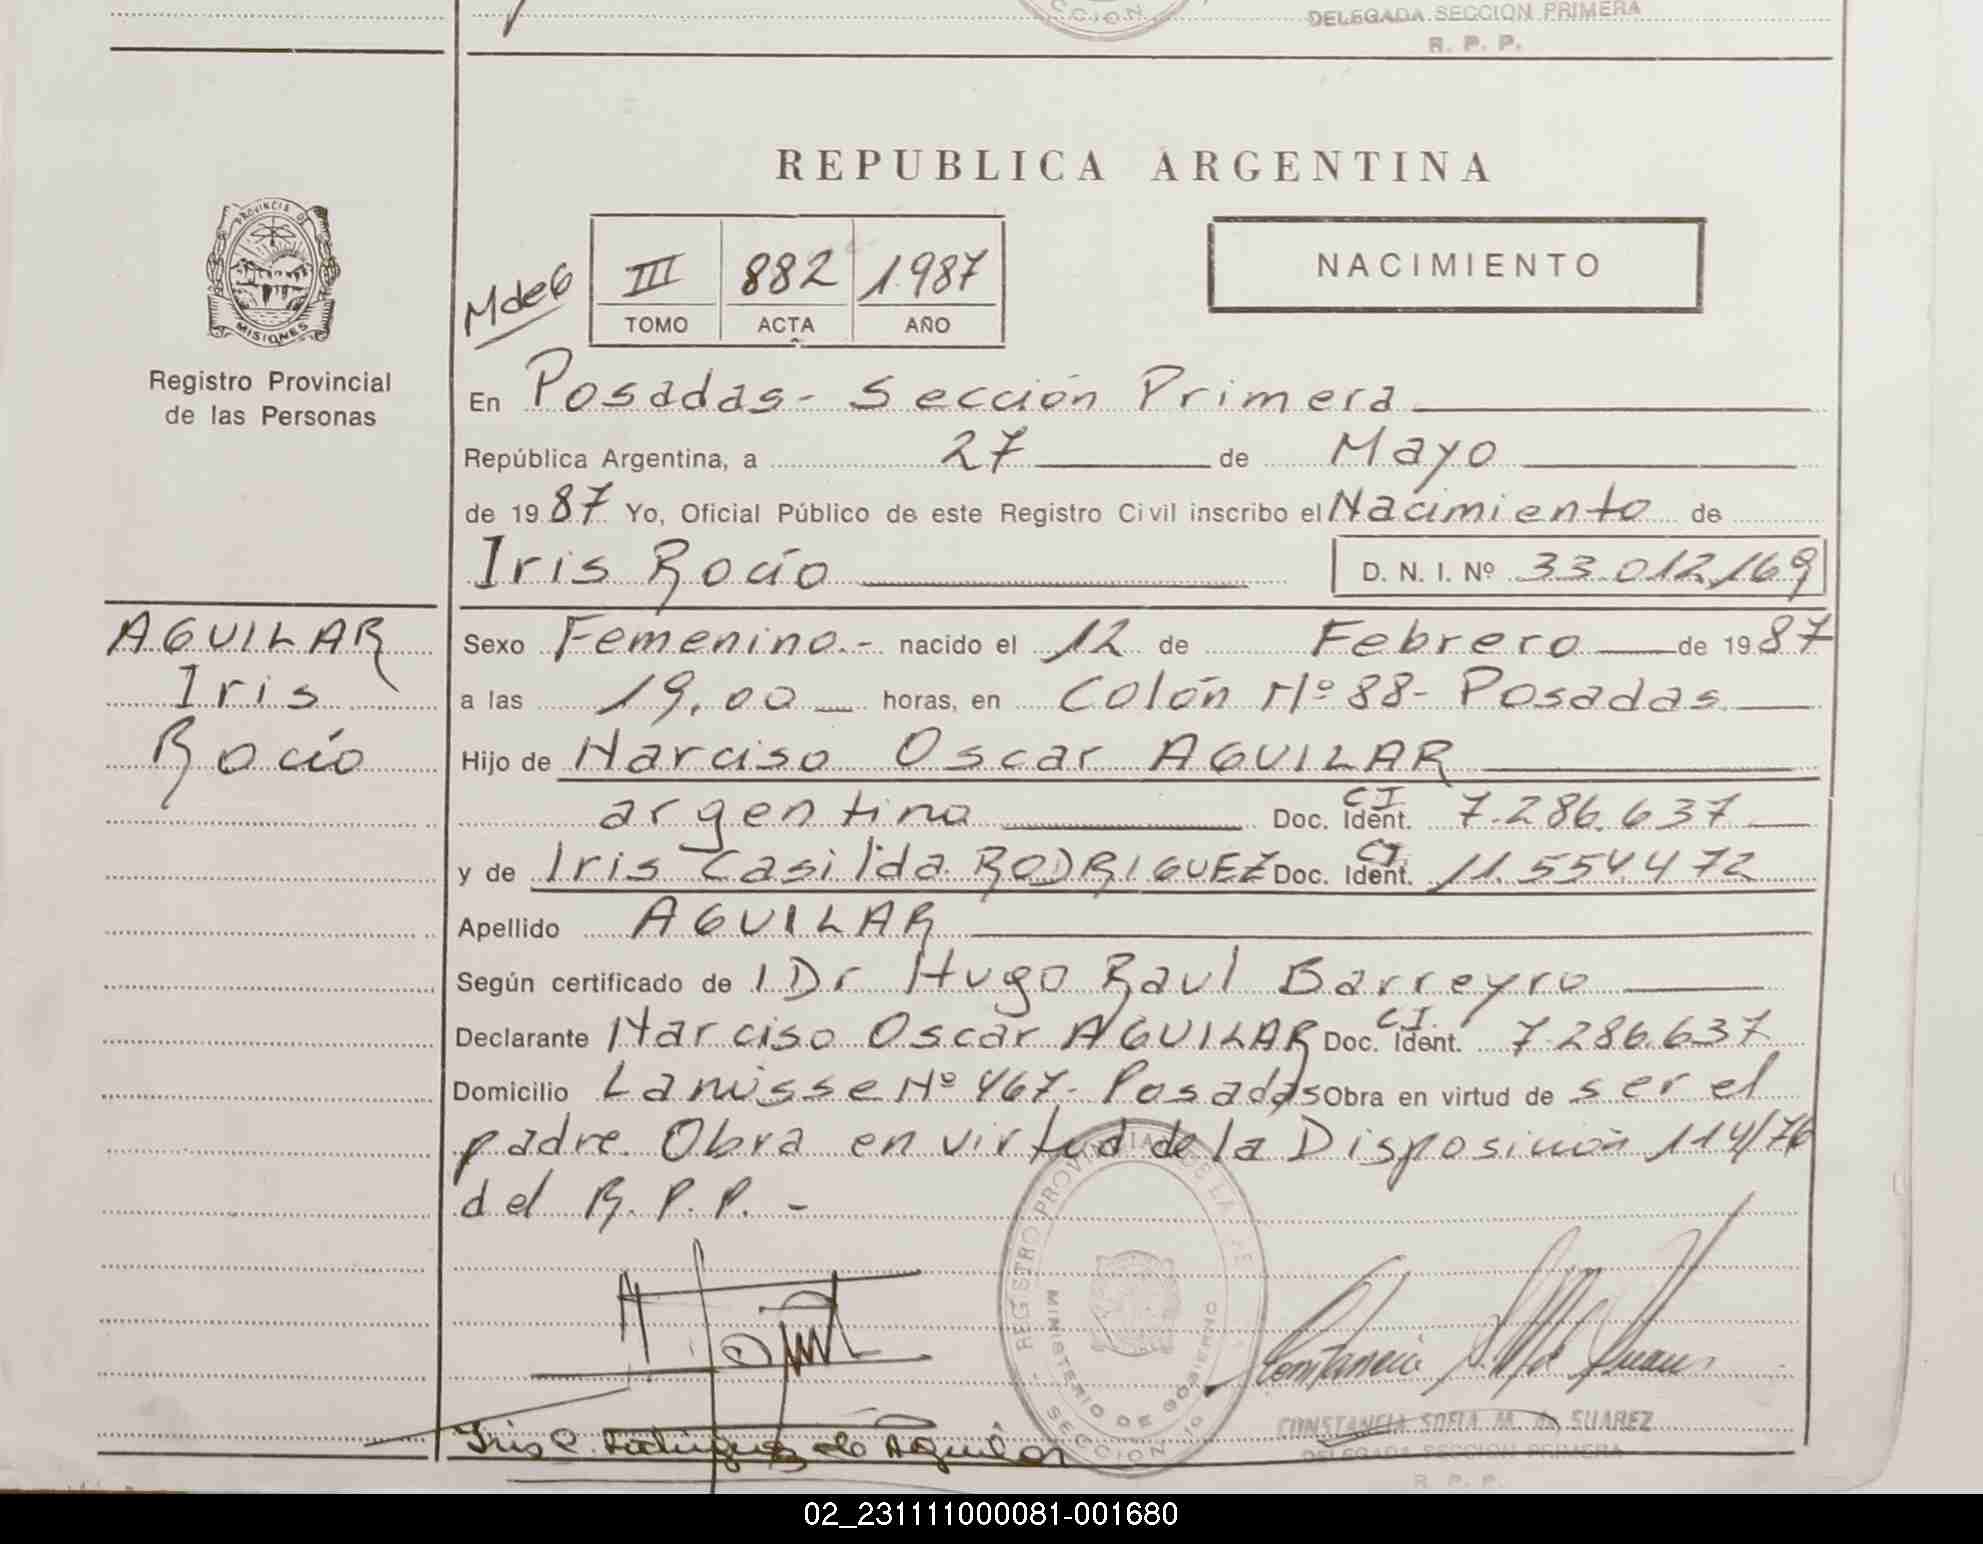 CCION
DELEGADA SECCION PRIMERA
R. P. P.
REPUBLICA ARGENTINA
PROVINCIA DE
MISIONES
Registro Provincial
de las Personas
MdeG
III 882 1.987
TOMO ACTA AÑO
NACIMIENTO
En Posadas- Sección Primera
República Argentina, a 27 de Mayo
de 1987 Yo, Oficial Público de este Registro Civil inscribo el Nacimiento de
Iris Rocío D. N. I. Nº 33.012.169
AGUILAR
Iris
Rocío
Sexo Femenino.- nacido el 12 de Febrero de 1987
a las 19,00 horas, en Colón Nº 88- Posadas
Hijo de Narciso Oscar AGUILAR
argentino Doc. Ident. CI 7.286.637
y de Iris Casilda RODRIGUEZ Doc. Ident. CI. 11.554.472
Apellido AGUILAR
Según certificado de l Dr Hugo Raul Barreyro
Declarante Narciso Oscar AGUILAR Doc. Ident. C.I. 7.286.637
Domicilio Lanusse Nº 467- Posadas Obra en virtud de ser el
padre. Obra en virtud de la Disposición 114/76
del R. P. P. -
REGISTRO PROVINCIAL DE LA
MINISTERIO DE GOBIERNO
SECCION 1º
Iris C. Rodriguez de Aguilar
CONSTANCIA SOFIA M. de SUAREZ
DELEGADA SECCION PRIMERA
R. P. P.
02_231111000081-001680